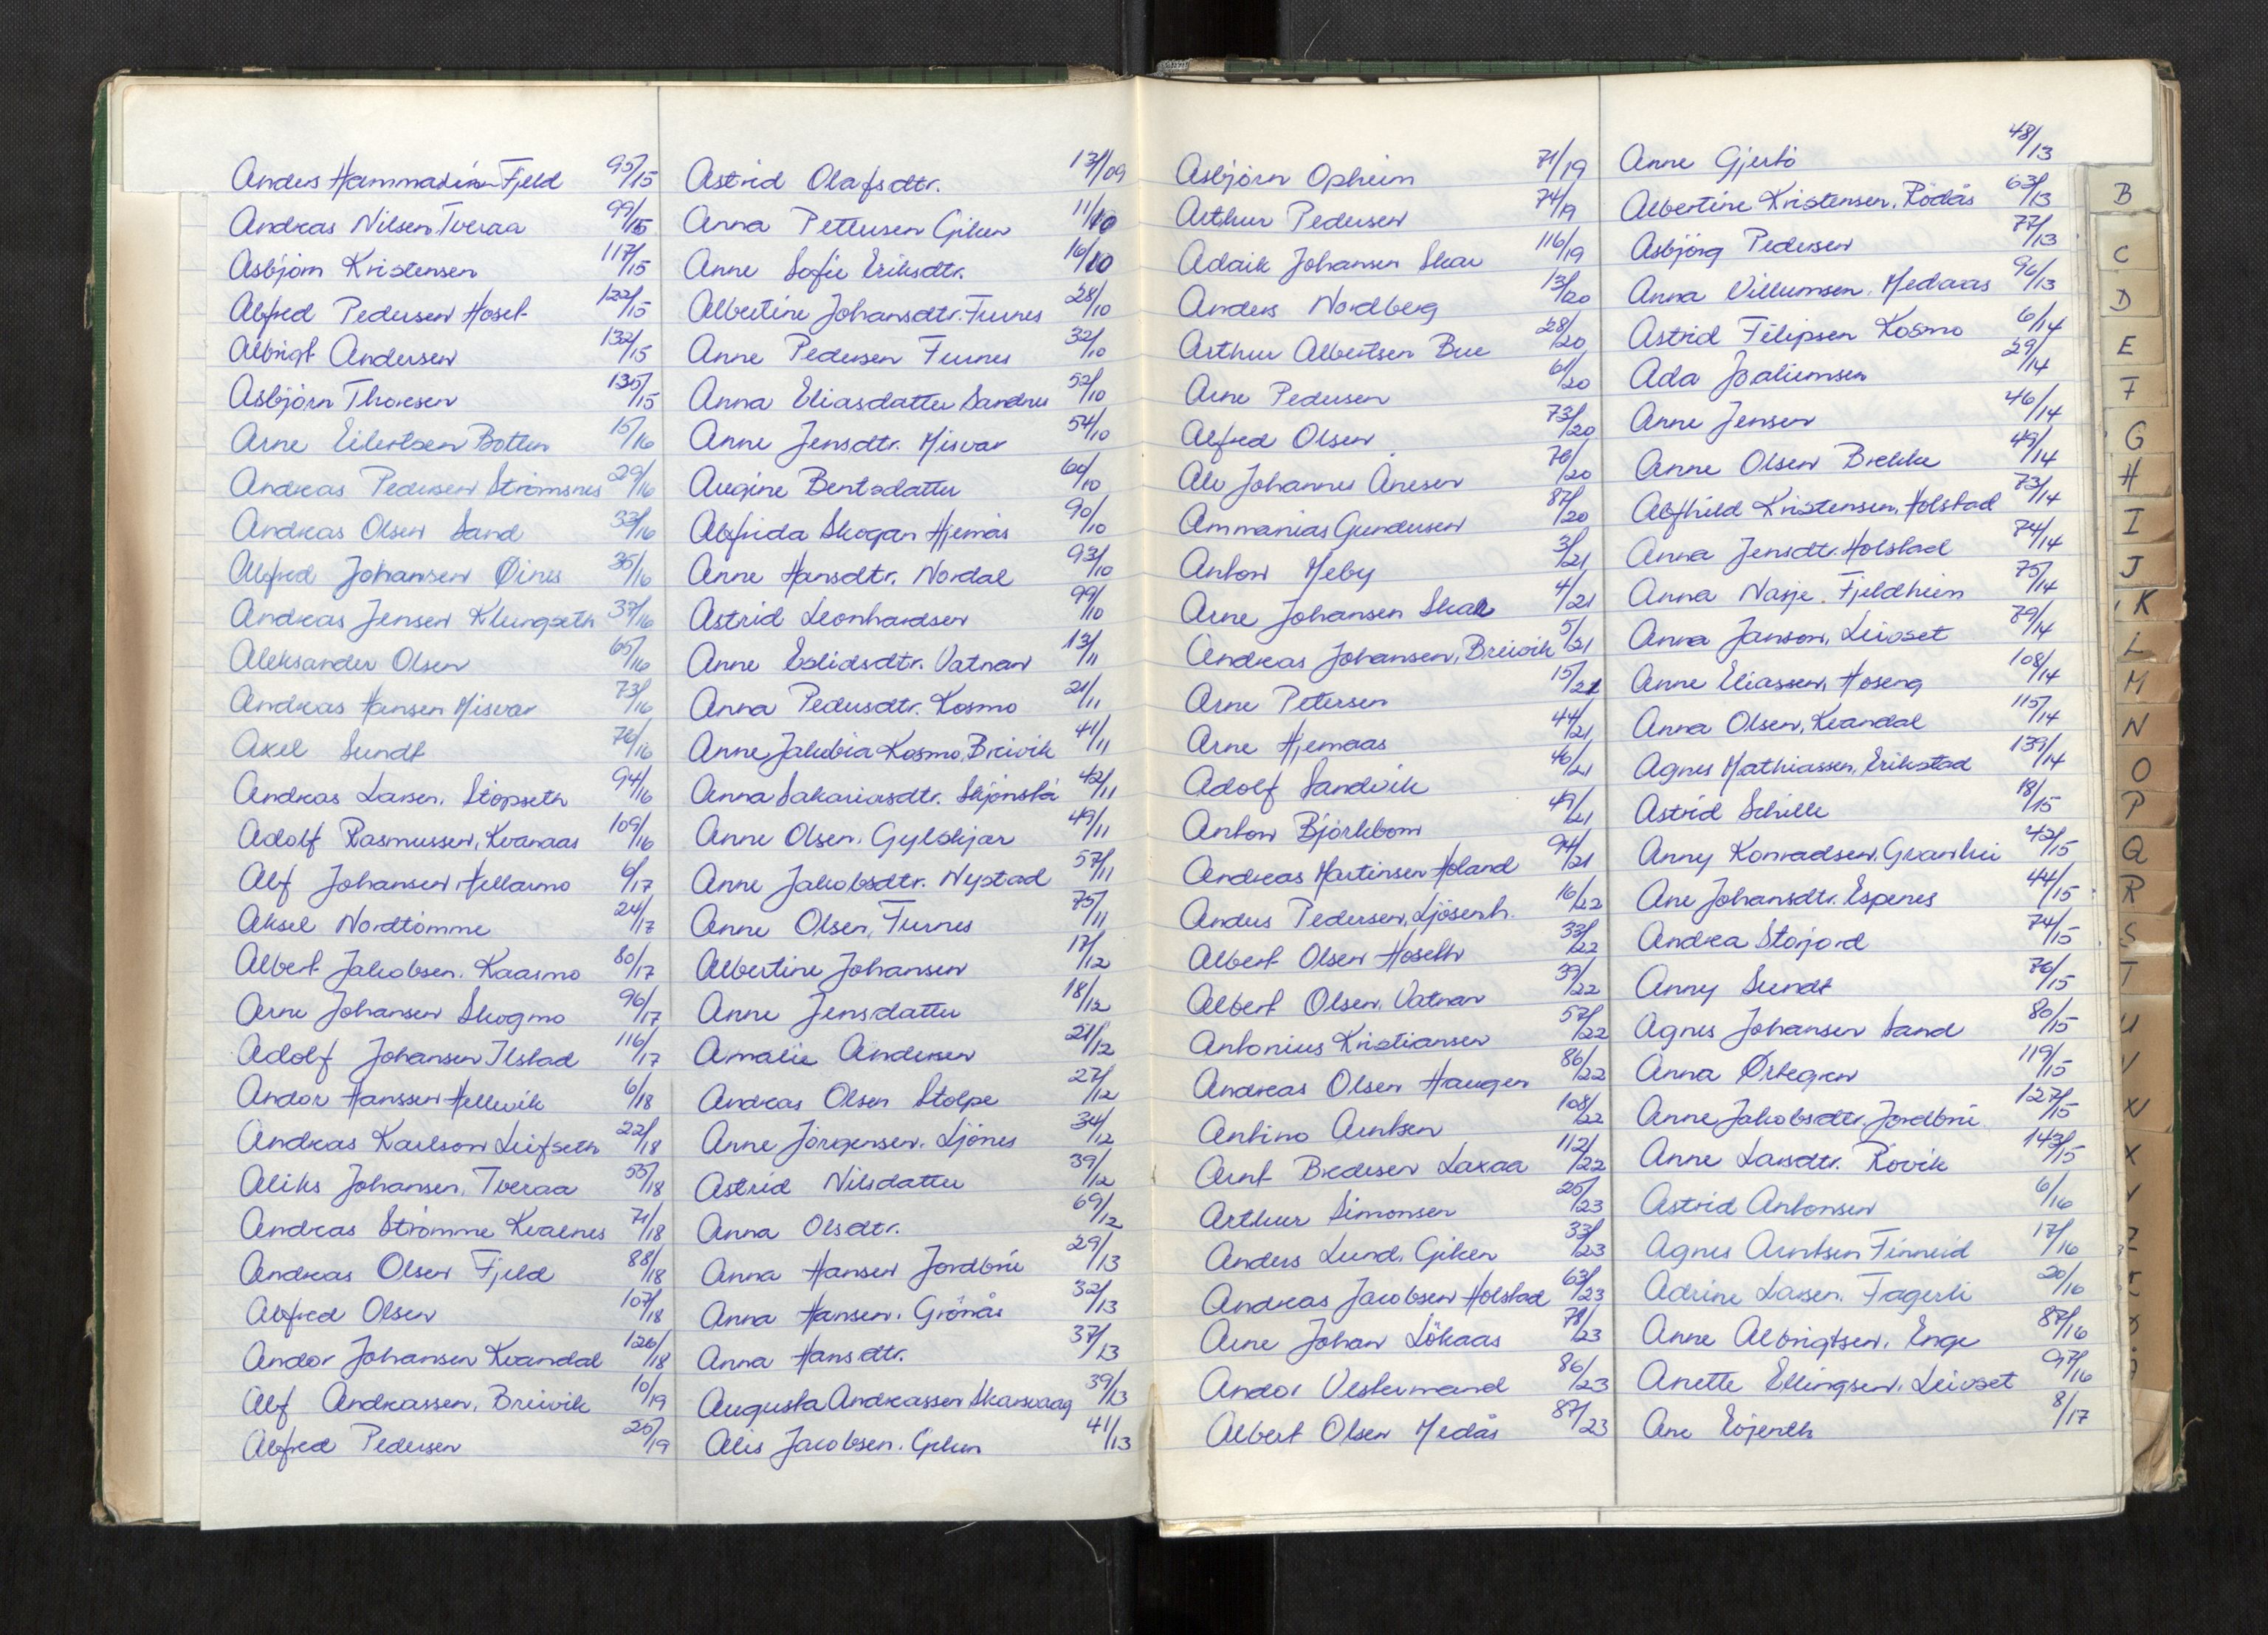 Anders Hammadin Fjeld 95/15
Andreas Nilsen Tveraa 99/15
Asbjörn Kristensen 117/15
Alfred Pedersen Hoset 122/15
Albrigt Andersen 132/15
Asbjörn Thoresen 135/15
Arne Eilertsen Botten 15/16
Andreas Pedersen Strömsnes 29/16
Andreas Olsen Sand 33/16
Alfred Johansen Øines 35/16
Andreas Jensen Klungseth 37/16
Aleksander Olsen 65/16
Andreas Hansen Misvær 73/16
Axel Sundt 76/16
Andreas Larsen, Stöpseth 94/16
Adolf Rasmussen, Kvanaas 109/16
Alf Johansen Hellarmo 6/17
Aksel Nordtömme 24/17
Albert Jakobsen, Kaasmo 80/17
Arne Johansen Skogmo 96/17
Adolf Johansen Ilstad 116/17
Andor Hanssen Hellevik 6/18
Andreas Karlson Leifseth 22/18
Aliks Johansen, Tveraa 55/18
Andreas Strömme Kvalnes 71/18
Andreas Olsen Fjeld 88/18
Alfred Olsen 107/18
Andor Johansen Kvandal 126/18
Alf Andreassen, Breivik 10/19
Alfred Pedersen 25/19
Astrid Olafsdtr. 131/09
Anna Pettersen Giken 11/10
Anne Sofie Eriksdtr. 16/10
Albertine Johansdtr. Furnes 28/10
Anne Pedersen Furnes 32/10
Anna Eliasdatter Sandnes 52/10
Anne Jensdtr. Misvær 54/10
Augine Bentsdatter 60/10
Alfrida Skogan Hjemås 90/10
Anne Hansdtr. Nordal 93/10
Astrid Leonhardsen 99/10
Anne Eslidsdtr. Vatnan 13/11
Anna Pedersdtr. Kosmo 21/11
Anne Jakobia Kosmo, Breivik 41/11
Anna Sakariasdtr. Skjönstå 42/11
Anne Olsen, Gylskjær 49/11
Anne Jakobsdtr. Nystad 57/11
Anne Olsen, Furnes 75/11
Albertine Johansen 17/12
Anne Jensdatter 18/12
Amalie Andersen 21/12
Andreas Olsen Stolpe 27/12
Anne Jörgensen, Ljönes 34/12
Astrid Nilsdatter 39/12
Anna Olsdtr. 69/12
Anna Hansen Jordbru 29/13
Anna Hansen, Grönås 32/13
Anna Hansdtr. 37/13
Augusta Andreassen Skarsvaag 39/13
Alis Jacobsen, Giken 41/13
Asbjörn Opheim 71/19
Arthur Pedersen 74/19
Adaik Johansen Skar 116/19
Anders Nordberg 13/20
Arthur Albertsen Bue 28/20
Arne Pedersen 61/20
Alfred Olsen 73/20
Ale Johannes Ånesen 76/20
Ammanias Gundersen 87/20
Anton Meby 3/21
Arne Johansen Skar 4/21
Andreas Johansen, Breivik 5/21
Arne Petersen 15/21
Arne Hjemaas 44/21
Adolf Sandvik 46/21
Anton Björkbom 49/21
Andreas Martinsen Høland 94/21
Anders Pedersen, Ljösenh. 16/22
Albert Olsen Hoseth 33/22
Albert Olsen, Vatnan 39/22
Antonius Kristiansen 57/22
Andreas Olsen Haugen 86/22
Antino Arntsen 108/22
Arnt Bredesen Laxaa 112/22
Arthur Simonsen 25/23
Anders Lund, Giken 33/23
Andreas Jacobsen Holstad 63/23
Arne Johan Lökaas 78/23
Andor Vestermand 86/23
Albert Olsen Medås 87/23
Anne Gjertö 48/13
Albertine Kristensen, Rödås 63/13
Asbjörg Pedersen 77/13
Anna Villumsen, Medaas 96/13
Astrid Filipsen Kosmo 6/14
Ada Joakimsen 29/14
Anne Jensen 46/14
Anne Olsen Brekke 49/14
Alfhild Kristensen, Holstad 73/14
Anna Jensdtr. Holstad 74/14
Anna Nasje. Fjeldheim 75/14
Anna Janson, Leivset 79/14
Anne Eliassen, Hoseng 108/14
Anna Olsen, Kvandal 115/14
Agnes Mathiassen, Erikstad 139/14
Astrid Schille 18/15
Anny Konradsen, Granhei 42/15
Ane Johansdtr. Espenes 44/15
Andrea Storjord 74/15
Anny Sundt 76/15
Agnes Johansen Sand 80/15
Anna Örtegren 119/15
Anne Jakobsdtr. Jordbru 127/15
Anne Larsdtr. Rövik 143/15
Astrid Antonsen 6/16
Agnes Arntsen Finneid 17/16
Adrine Larsen. Fagerli 20/16
Anne Albrigtsen, Enge 87/16
Anette Ellingsen, Leivset 97/16
Ane Eöjenth 8/17
B
C
D
E
F
G
H
I
J
K
L
M
N
O
P
Q
R
S
T
U
V
W
X
Y
Z
Æ
Ø